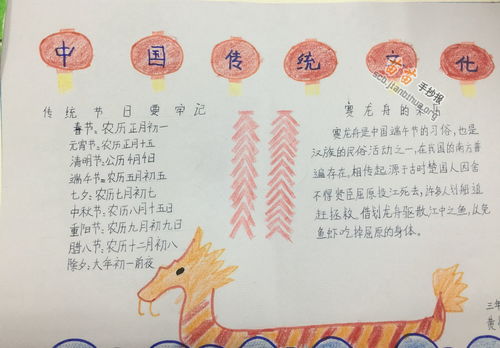 中国传统文化
传统节日要牢记
春节：农历正月初一
元宵节：农历正月十五
清明节：公历4月4日
端午节：农历五月初五
七夕：农历七月初七
中秋节：农历八月十五日
重阳节：农历九月初九日
腊八节：农历十二月初八
除夕：大年初一前夜
赛龙舟的来
赛龙舟是中国端午节的习俗，也是
汉族的民俗活动之一，在我国的南方普
遍存在，相传起源于古时楚国人因舍
不得贤臣屈原投江死去，许多人划船追
赶拯救，借划龙舟驱散江中之鱼，以免
鱼虾吃掉屈原的身体。
苗苗手抄报
scb.jianbihua.org
三年
黄